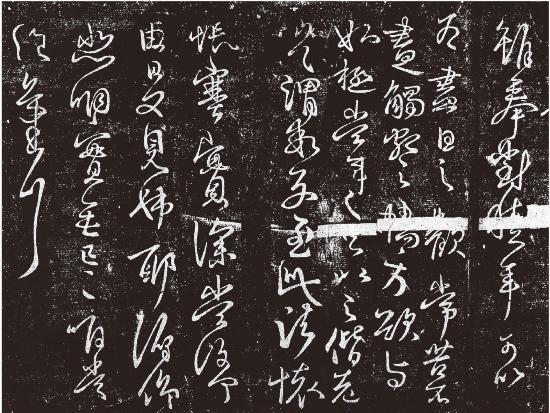 雖奉對積年可以
為盡日之歡常苦不
盡觸額之暢方欲與
姊極當年之足以之偕老
豈謂乖別至此諸懷
悵塞實深當復何
由日夕見姊耶俯仰
悲咽實無已已惟當
絕氣耳